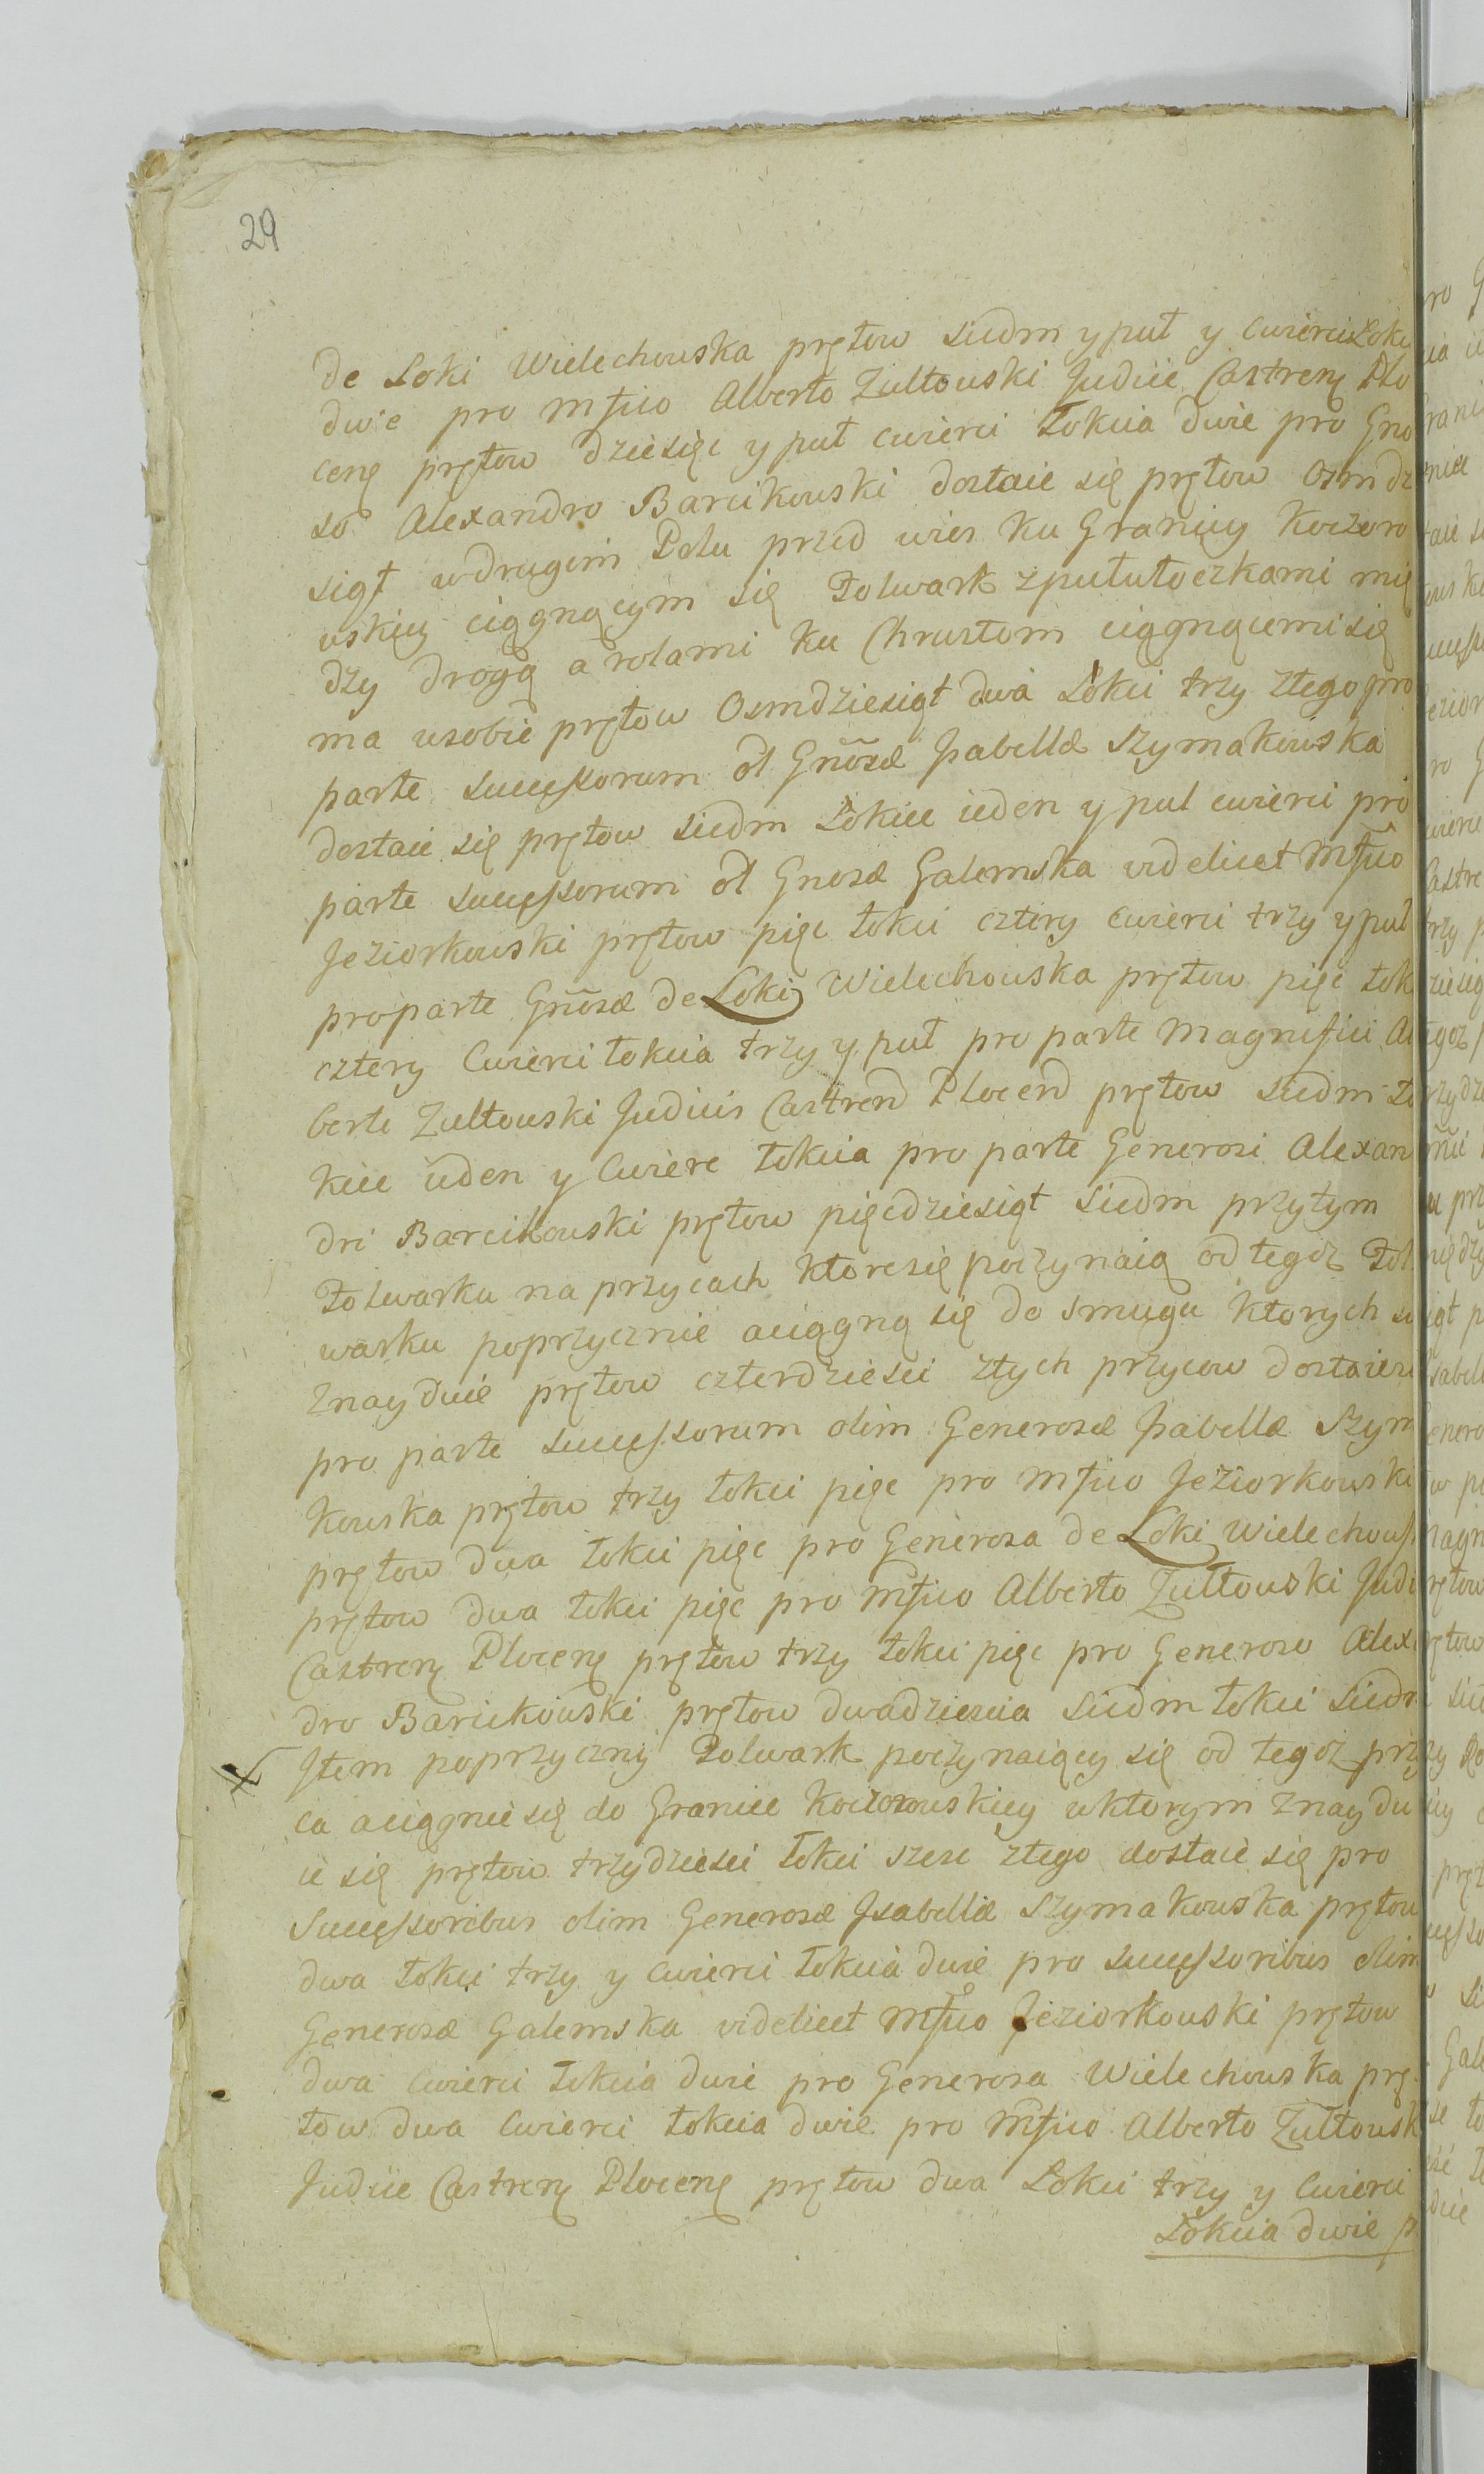 29
de Loki Wielechowska prętow siedm y puł y cwierci Łokc
dwie pro Mfico Alberto Zułtowski Judice Castren Plo
cen prętow dziesięc y puł cwierci Łokcia dwie pro Gno
so Alexandro Barcikowski dostaie się prętow Osmdz
siąt w drugim Polu przed wies ku Granicy Koczoro
wskiey ciągnącym się Folwark z pułułoczkami mię
dzy drogą a rolami ku Chrustom ciągnącemi się
ma w sobie prętow Osmdziesiąt dwa Łokci trzy z tego pro
parte Successorum ol Gnosæ Isabellæ Szymakowska
dostaie się prętow siedm Łokiec ieden y puł cwierci pro
parte successorum ol Gnosæ Galemska videlicet Mfico
Jeziorkowski prętow pięc łokci cztery cwierci trzy y puł
pro parte Gnosæ de Loki Wielechowska prętow pięc łok
cztery Cwierci łokcia trzy y puł pro parte Magnifici Al
berti Zułtowski Judicis Castren Plocen prętow siedm Ło
kiec ieden y Cwierc łokcia pro parte Generosi Alexan
dri Barcikowski prętow pięcdziesiąt siedm przy tym
Folwarku na przycach ktore się poczynaią od tegoz Fol
warku poprzycznie a ciągną się do smugu ktorych
znayduie prętow czterdziesci z tych przycow dostaie
pro parte Successorum olim Generosæ Isabellæ Szym
kowska prętow trzy łokci pięc pro Mfico Jeziorkowski
prętow dwa łokci pięc pro Generosa de Loki Wielechows
prętow dwa łokci pięc pro Mfico Alberto Zułtowski Judi
Castren Plocen prętow trzy łokci pięc pro Generoso Alex
dro Barcikowski prętow dwadziescia siedm łokci siedm
Item poprzyczny Folwark poczynaiący się od tegoz przy
ca a ciągnie się do Granice Koczorowskiey w ktorym znaydu
ie się prętow trzydziesci łokci szesc z tego dostaie się pro
Successoribus olim Generosæ Isabellæ Szymakowska prętow
dwa łokci trzy y cwierci łokcia dwie pro Successoribus olim
Generosæ Galemska videlicet Mfico Jeziorkowski prętow
dwa Cwierci łokcia dwie pro Generosa Wielechowska prę
tow dwa Cwierci łokcia dwie pro Mfico Alberto Zułtowsk
Judice Castren Plocen prętow dwa Łokci trzy y Cwierci
Łokcia dwie